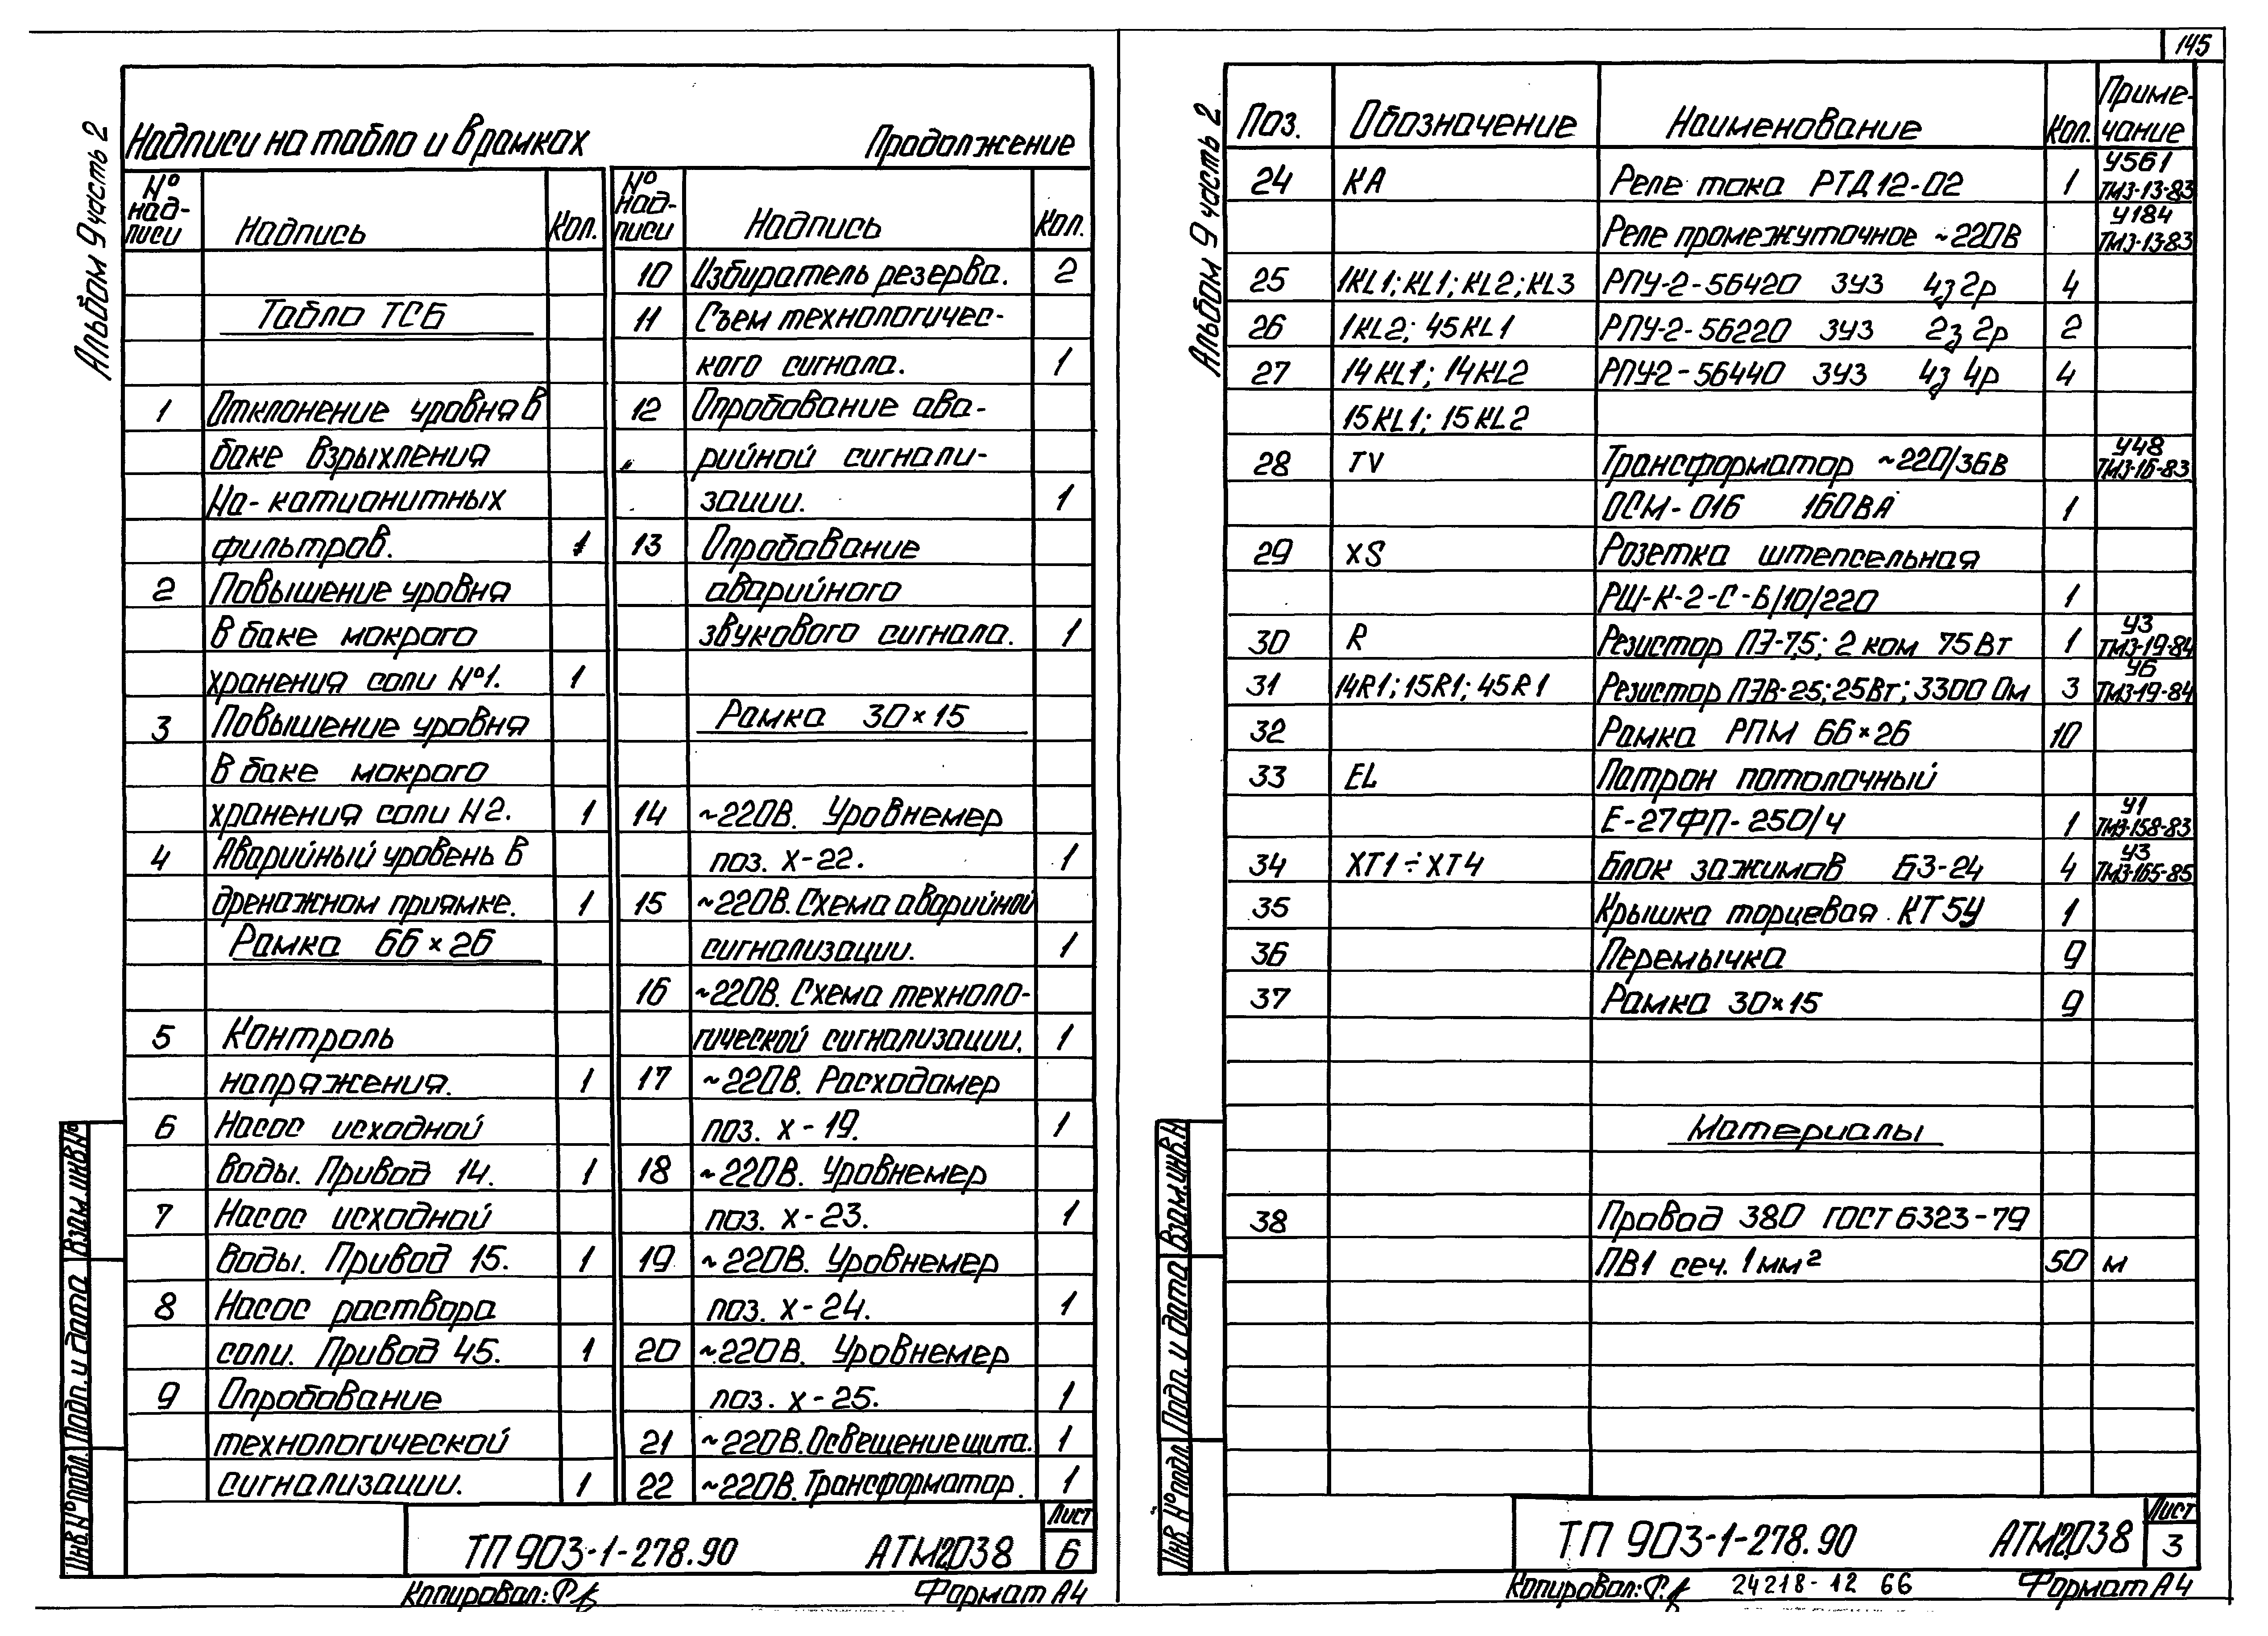 145
Альбом 9 часть 2
Надписи на табло и в рамках Продолжение
№ надписи Надпись Кол.
Табло ТСБ
1 Отклонение уровня в
баке взрыхления
Na-катионитных
фильтров. 1
2 Повышение уровня
в баке мокрого
хранения соли №1. 1
3 Повышение уровня
в баке мокрого
хранения соли N2. 1
4 Аварийный уровень в
дренажном приямке. 1
Рамка 66×26
5 Контроль
напряжения. 1
6 Насос исходной
воды. Привод 14. 1
7 Насос исходной
воды. Привод 15. 1
8 Насос раствора
соли. Привод 45. 1
9 Опробование
технологической
сигнализации. 1
№ надписи Надпись Кол.
10 Избиратель резерва. 2
11 Съем технологичес-
кого сигнала. 1
12 Опробование ава-
рийной сигнали-
зации. 1
13 Опробование
аварийного
звукового сигнала. 1
Рамка 30×15
14 ~220В. Уровнемер
поз. X-22. 1
15 ~220В. Схема аварийной
сигнализации. 1
16 ~220В. Схема техноло-
гической сигнализации. 1
17 ~220В. Расходомер
поз. X-19. 1
18 ~220В. Уровнемер
поз. X-23. 1
19 ~220В. Уровнемер
поз. X-24. 1
20 ~220В. Уровнемер
поз. X-25. 1
21 ~220В. Освещение щита. 1
22 ~220В. Трансформатор. 1
Взам.инв.№
Подп. и дата
Инв.№ подл.
ТП 903-1-278.90 АТМ2.038 Лист 6
Копировал: Формат А4
Альбом 9 часть 2
Поз. Обозначение Наименование Кол. Примечание
24 KA Реле тока РТД12-02 1 У561 ТМ3-13-83
Реле промежуточное ~220В У184 ТМ3-13-83
25 1KL1; KL1; KL2; KL3 РПУ-2-56420 3У3 4з 2р 4
26 1KL2; 45KL1 РПУ-2-56220 3У3 2з 2р 2
27 14KL1; 14KL2 РПУ-2-56440 3У3 4з 4р 4
15KL1; 15KL2
28 TV Трансформатор ~220/36В У48 ТМ3-16-83
ОСМ-016 160ВА 1
29 XS Розетка штепсельная
РШ-К-2-С-Б/10/220 1
30 R Резистор ПЭ-7,5; 2 ком 75Вт 1 У3 ТМ3-19-84
31 14R1; 15R1; 45R1 Резистор ПЭВ-25; 25Вт; 3300 Ом 3 У6 ТМ3-19-84
32 Рамка РПМ 66×26 10
33 EL Патрон потолочный
Е-27ФП-250/4 1 У1 ТМ3-158-83
34 XT1÷XT4 Блок зажимов БЗ-24 4 У3 ТМ3-165-85
35 Крышка торцевая КТ5У 1
36 Перемычка 9
37 Рамка 30×15 9
Материалы
38 Провод 380 ГОСТ 6323-79
ПВ1 сеч. 1мм² 50 м
Взам.инв.N
Подп. и дата
Инв. № подл.
ТП 903-1-278.90 АТМ2.038 Лист 3
Копировал: 24218-12 66 Формат А4